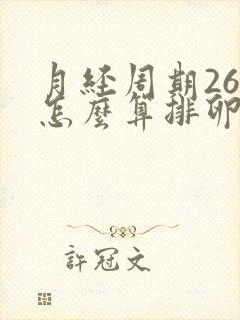 月経周期26
怎麼算排卵
許冠文